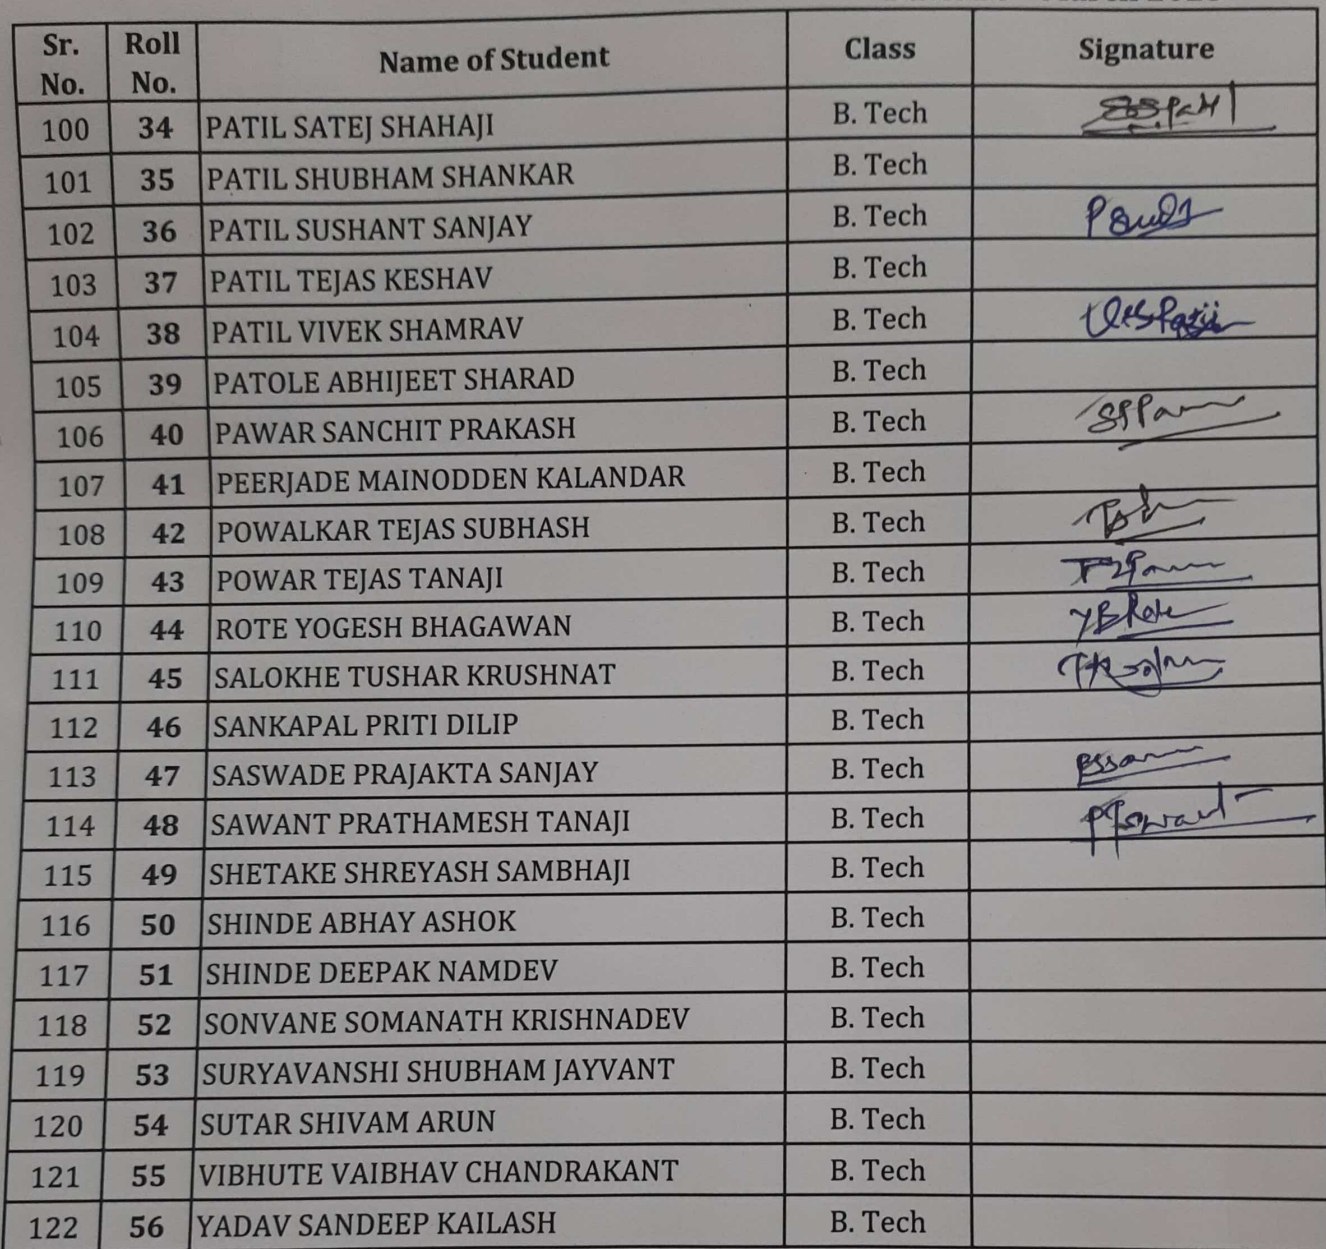 Sr. No. Roll No. Name of Student Class Signature
100 34 PATIL SATEJ SHAHAJI B. Tech
101 35 PATIL SHUBHAM SHANKAR B. Tech
102 36 PATIL SUSHANT SANJAY B. Tech
103 37 PATIL TEJAS KESHAV B. Tech
104 38 PATIL VIVEK SHAMRAV B. Tech
105 39 PATOLE ABHIJEET SHARAD B. Tech
106 40 PAWAR SANCHIT PRAKASH B. Tech
107 41 PEERJADE MAINODDEN KALANDAR B. Tech
108 42 POWALKAR TEJAS SUBHASH B. Tech
109 43 POWAR TEJAS TANAJI B. Tech
110 44 ROTE YOGESH BHAGAWAN B. Tech YBRote
111 45 SALOKHE TUSHAR KRUSHNAT B. Tech
112 46 SANKAPAL PRITI DILIP B. Tech
113 47 SASWADE PRAJAKTA SANJAY B. Tech
114 48 SAWANT PRATHAMESH TANAJI B. Tech
115 49 SHETAKE SHREYASH SAMBHAJI B. Tech
116 50 SHINDE ABHAY ASHOK B. Tech
117 51 SHINDE DEEPAK NAMDEV B. Tech
118 52 SONVANE SOMANATH KRISHNADEV B. Tech
119 53 SURYAVANSHI SHUBHAM JAYVANT B. Tech
120 54 SUTAR SHIVAM ARUN B. Tech
121 55 VIBHUTE VAIBHAV CHANDRAKANT B. Tech
122 56 YADAV SANDEEP KAILASH B. Tech